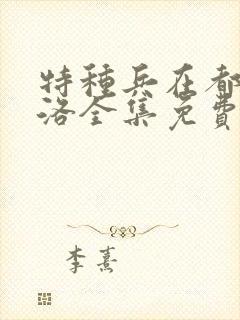 特種兵在都
洛全集免費
李熹